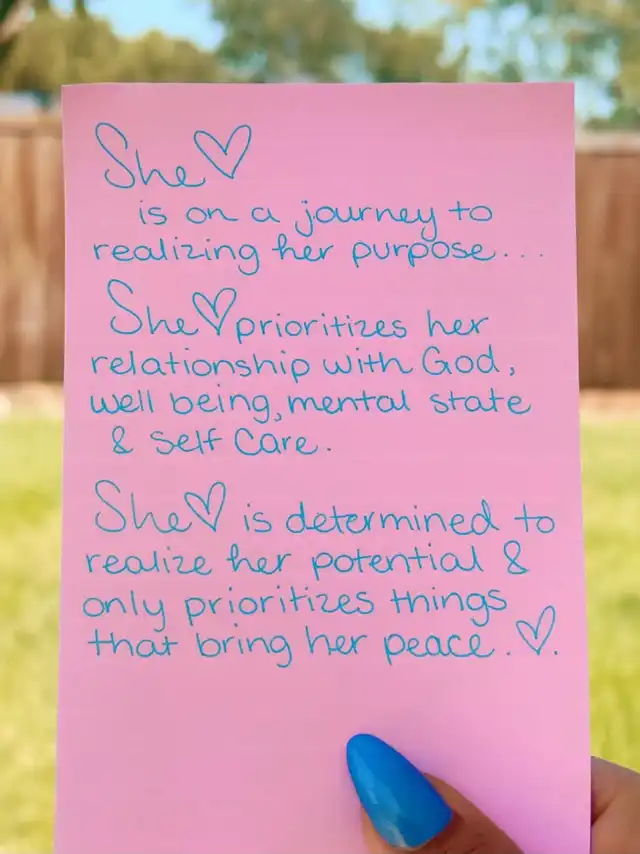 She♡
is on a journey to
realizing her purpose...
She♡prioritizes her
relationship with God,
well being, mental state
& Self Care.
She♡ is determined to
realize her potential &
only prioritizes things
that bring her peace.♡.